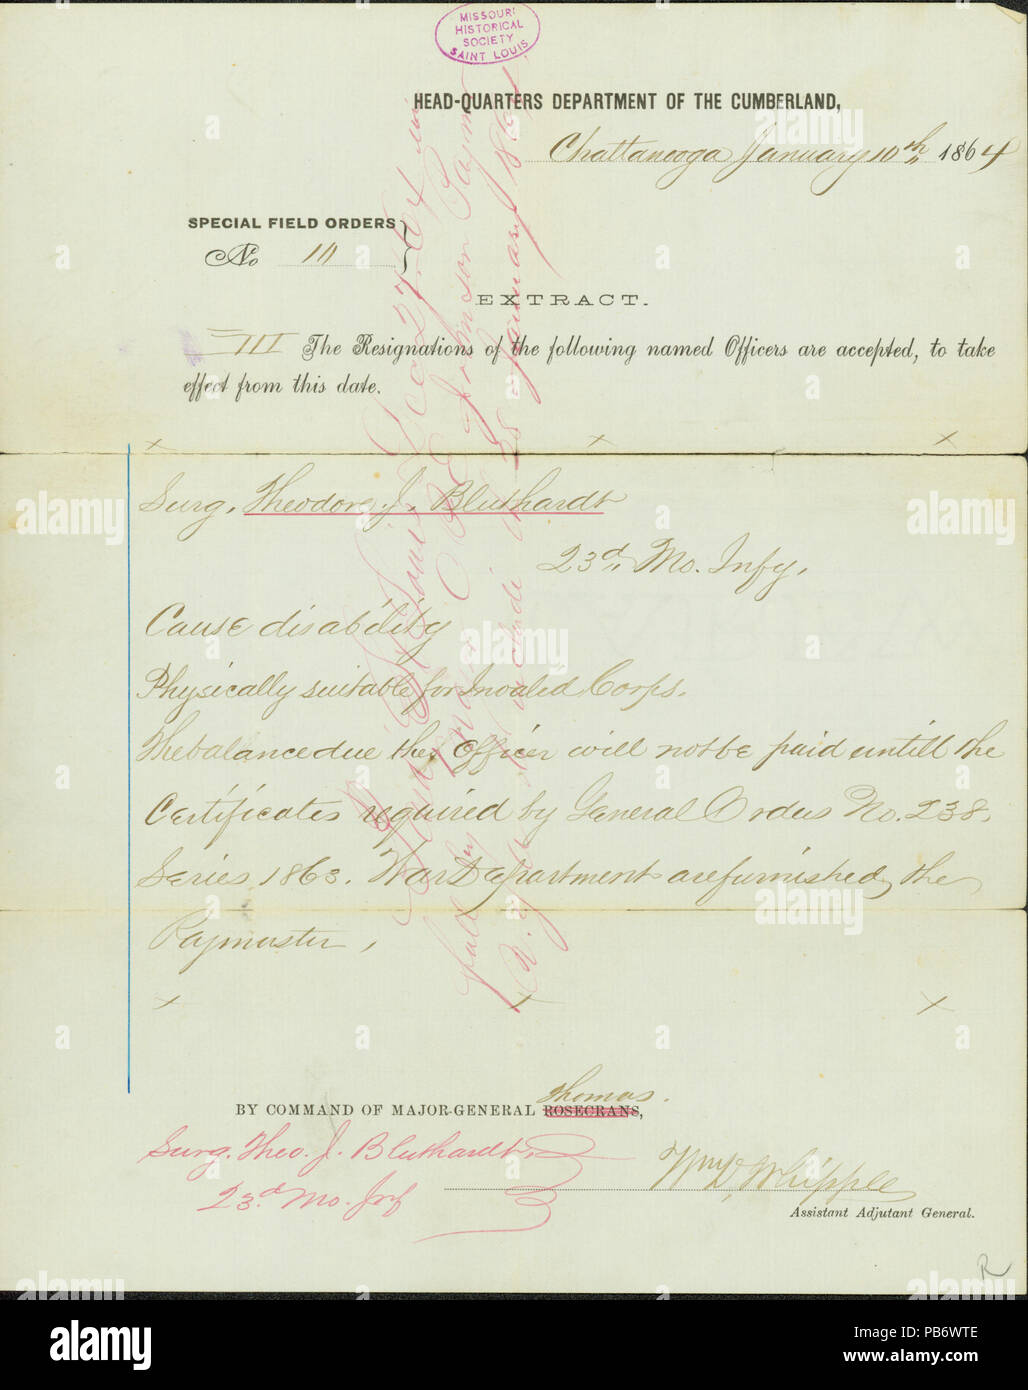 MISSOURI
HISTORICAL
SOCIETY
SAINT LOUIS
HEAD-QUARTERS DEPARTMENT OF THE CUMBERLAND,
Chattanooga January 10th 1864
SPECIAL FIELD ORDERS
No 10
EXTRACT.
III The Resignations of the following named Officers are accepted, to take
effect from this date.
Surg. Theodore J. Bluthardt
23d Mo. Infy,
Cause disability
Physically suitable for Invalid Corps.
The balance due the Officer will not be paid untill the
Certificates required by General Orders No. 238,
Series 1863. War Department are furnished the
Paymaster,
Thomas.
BY COMMAND OF MAJOR-GENERAL ROSECRANS,
Surg. Theo. J. Bluthardt,
23d Mo. Inf
Wm D. Whipple
Assistant Adjutant General.
R
St Louis Dec 27/64
Johnson Paym
include 28 January 1864
alamy
Image ID: PB6WTE
www.alamy.com